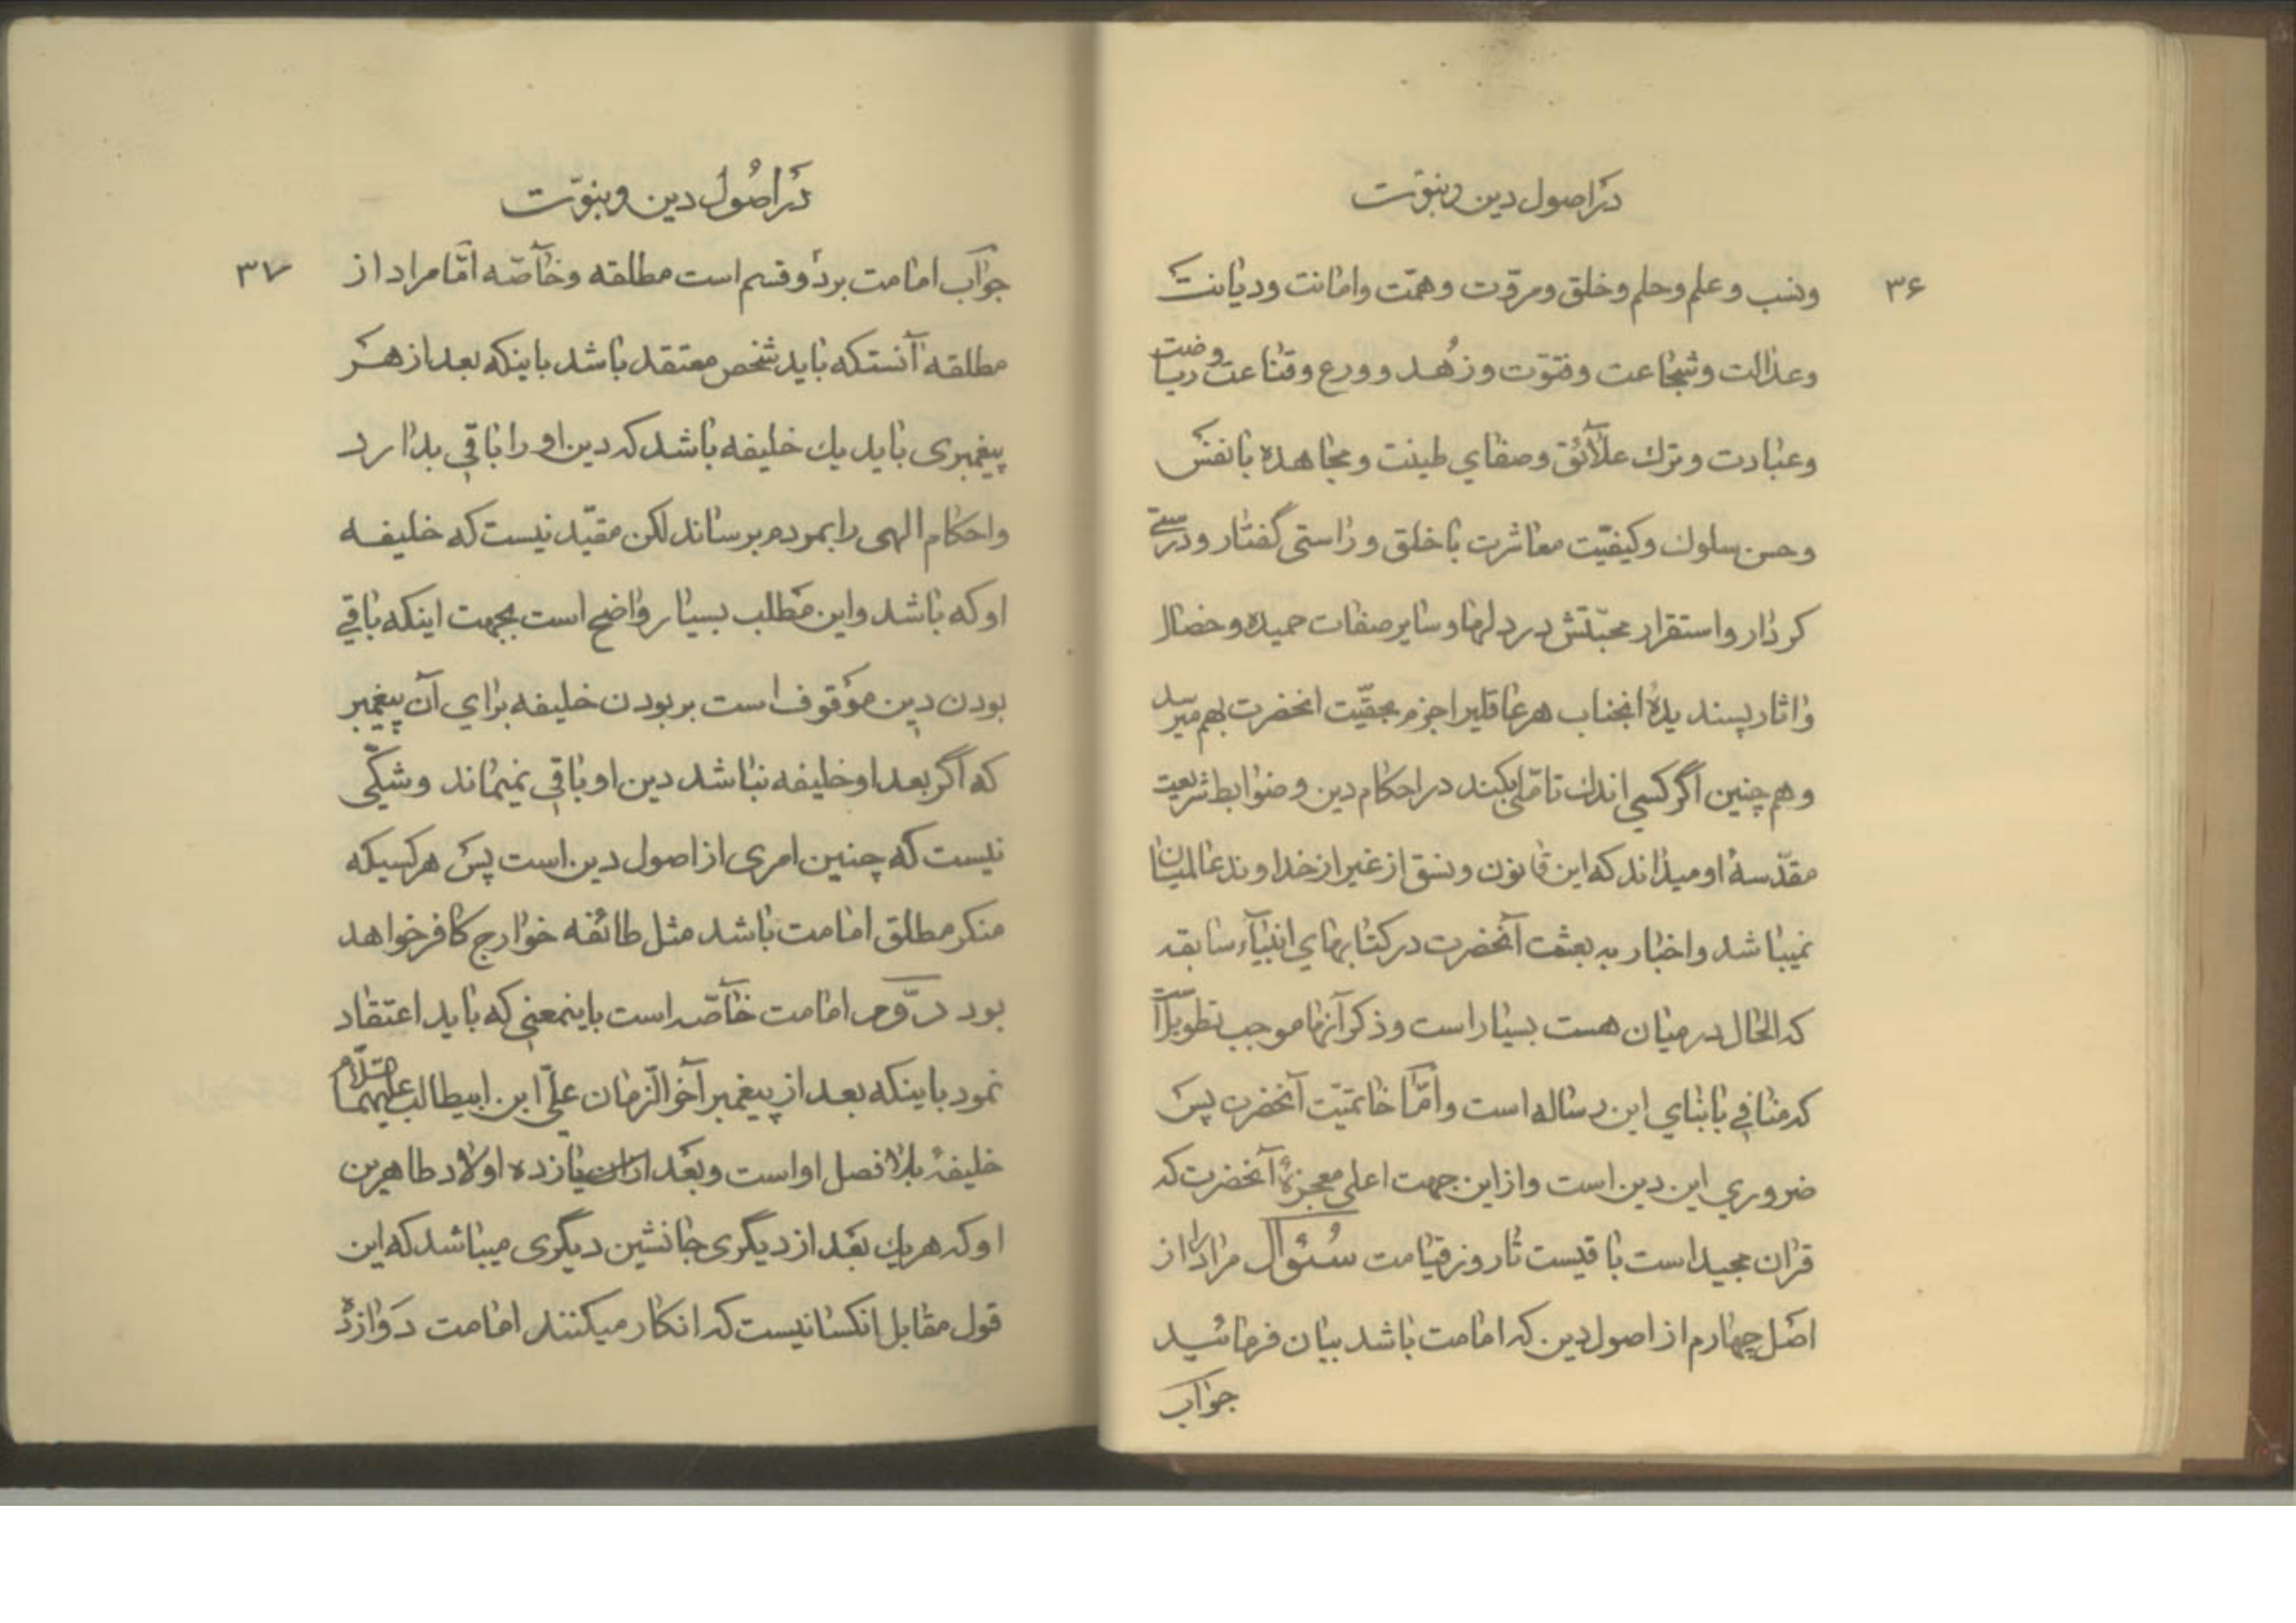 در اصول دین و نبوّت
۳۶
ونسب و علم و حلم و خلق و مروّت و همّت و امانت و دیانت
و عدالت و شجاعت و فتوّت و زُهد و ورع و قناعت و ریاضت
و عبادت و ترك علآئق و صفای طینت و مجاهده با نفس
و حسن سلوك و کیفیّت معاشرت با خلق و راستی گفتار و درستی
کردار و استقرار محبّتش در دلها و سایر صفات حمیده و خصال
و اثار پسندیدهٔ انجناب هر عاقلیرا جزم بحقیّت انحضرت بهم میرسد
و هم چنین اگر کسی اندك تامّلی بکند در احکام دین و ضوابط شریعت
مقدّسهٔ او میداند که این قانون و نسق از غیر از خداوند عالمیان
نمیباشد و اخبار به بعثت آنحضرت در کتابهای انبیآء سابقه
که الحال در میان هست بسیار است و ذکر آنها موجب تطویل است
که منافی با بنای این رساله است و امّا خاتمیّت آنحضرت پس
ضروری این دین است و از این جهت اعلی معجزهٔ آنحضرت که
قران مجید است باقیست تا روز قیامت سُئوال مراد از
اصل چهارم از اصول دین که امامت باشد بیان فرمائید
جواب
در اصُول دین و نبوّت
۳۷
جوآب امامت بر دو قسم است مطلقه و خآصّه امّا مراد از
مطلقه آنستکه باید شخص معتقد باشد باینکه بعد از هر
پیغمبری باید یك خلیفه باشد که دین او را باقی بدارد
و احکام الهی را بمردم برساند لکن مقیّد نیست که خلیفه
او که باشد و این مطلب بسیار واضح است بجهت اینکه باقی
بودن دین موقوف است بر بودن خلیفه برای آن پیغمبر
که اگر بعد او خلیفه نباشد دین او باقی نمیماند و شکّی
نیست که چنین امری از اصول دین است پس هر کسیکه
منکر مطلق امامت باشد مثل طائفه خوارج کافر خواهد
بود دوّم امامت خآصّه است باینمعنی که باید اعتقاد
نمود باینکه بعد از پیغمبر آخر الزّمان علیّ ابن ابیطالب علیهما السّلام
خلیفهٔ بلا فصل او است و بعد از ان یازده اولاد طاهرین
او که هر یك بعد از دیگری جانشین دیگری میباشد که این
قول مقابل انکسانیست که انکار میکنند امامت دوازده